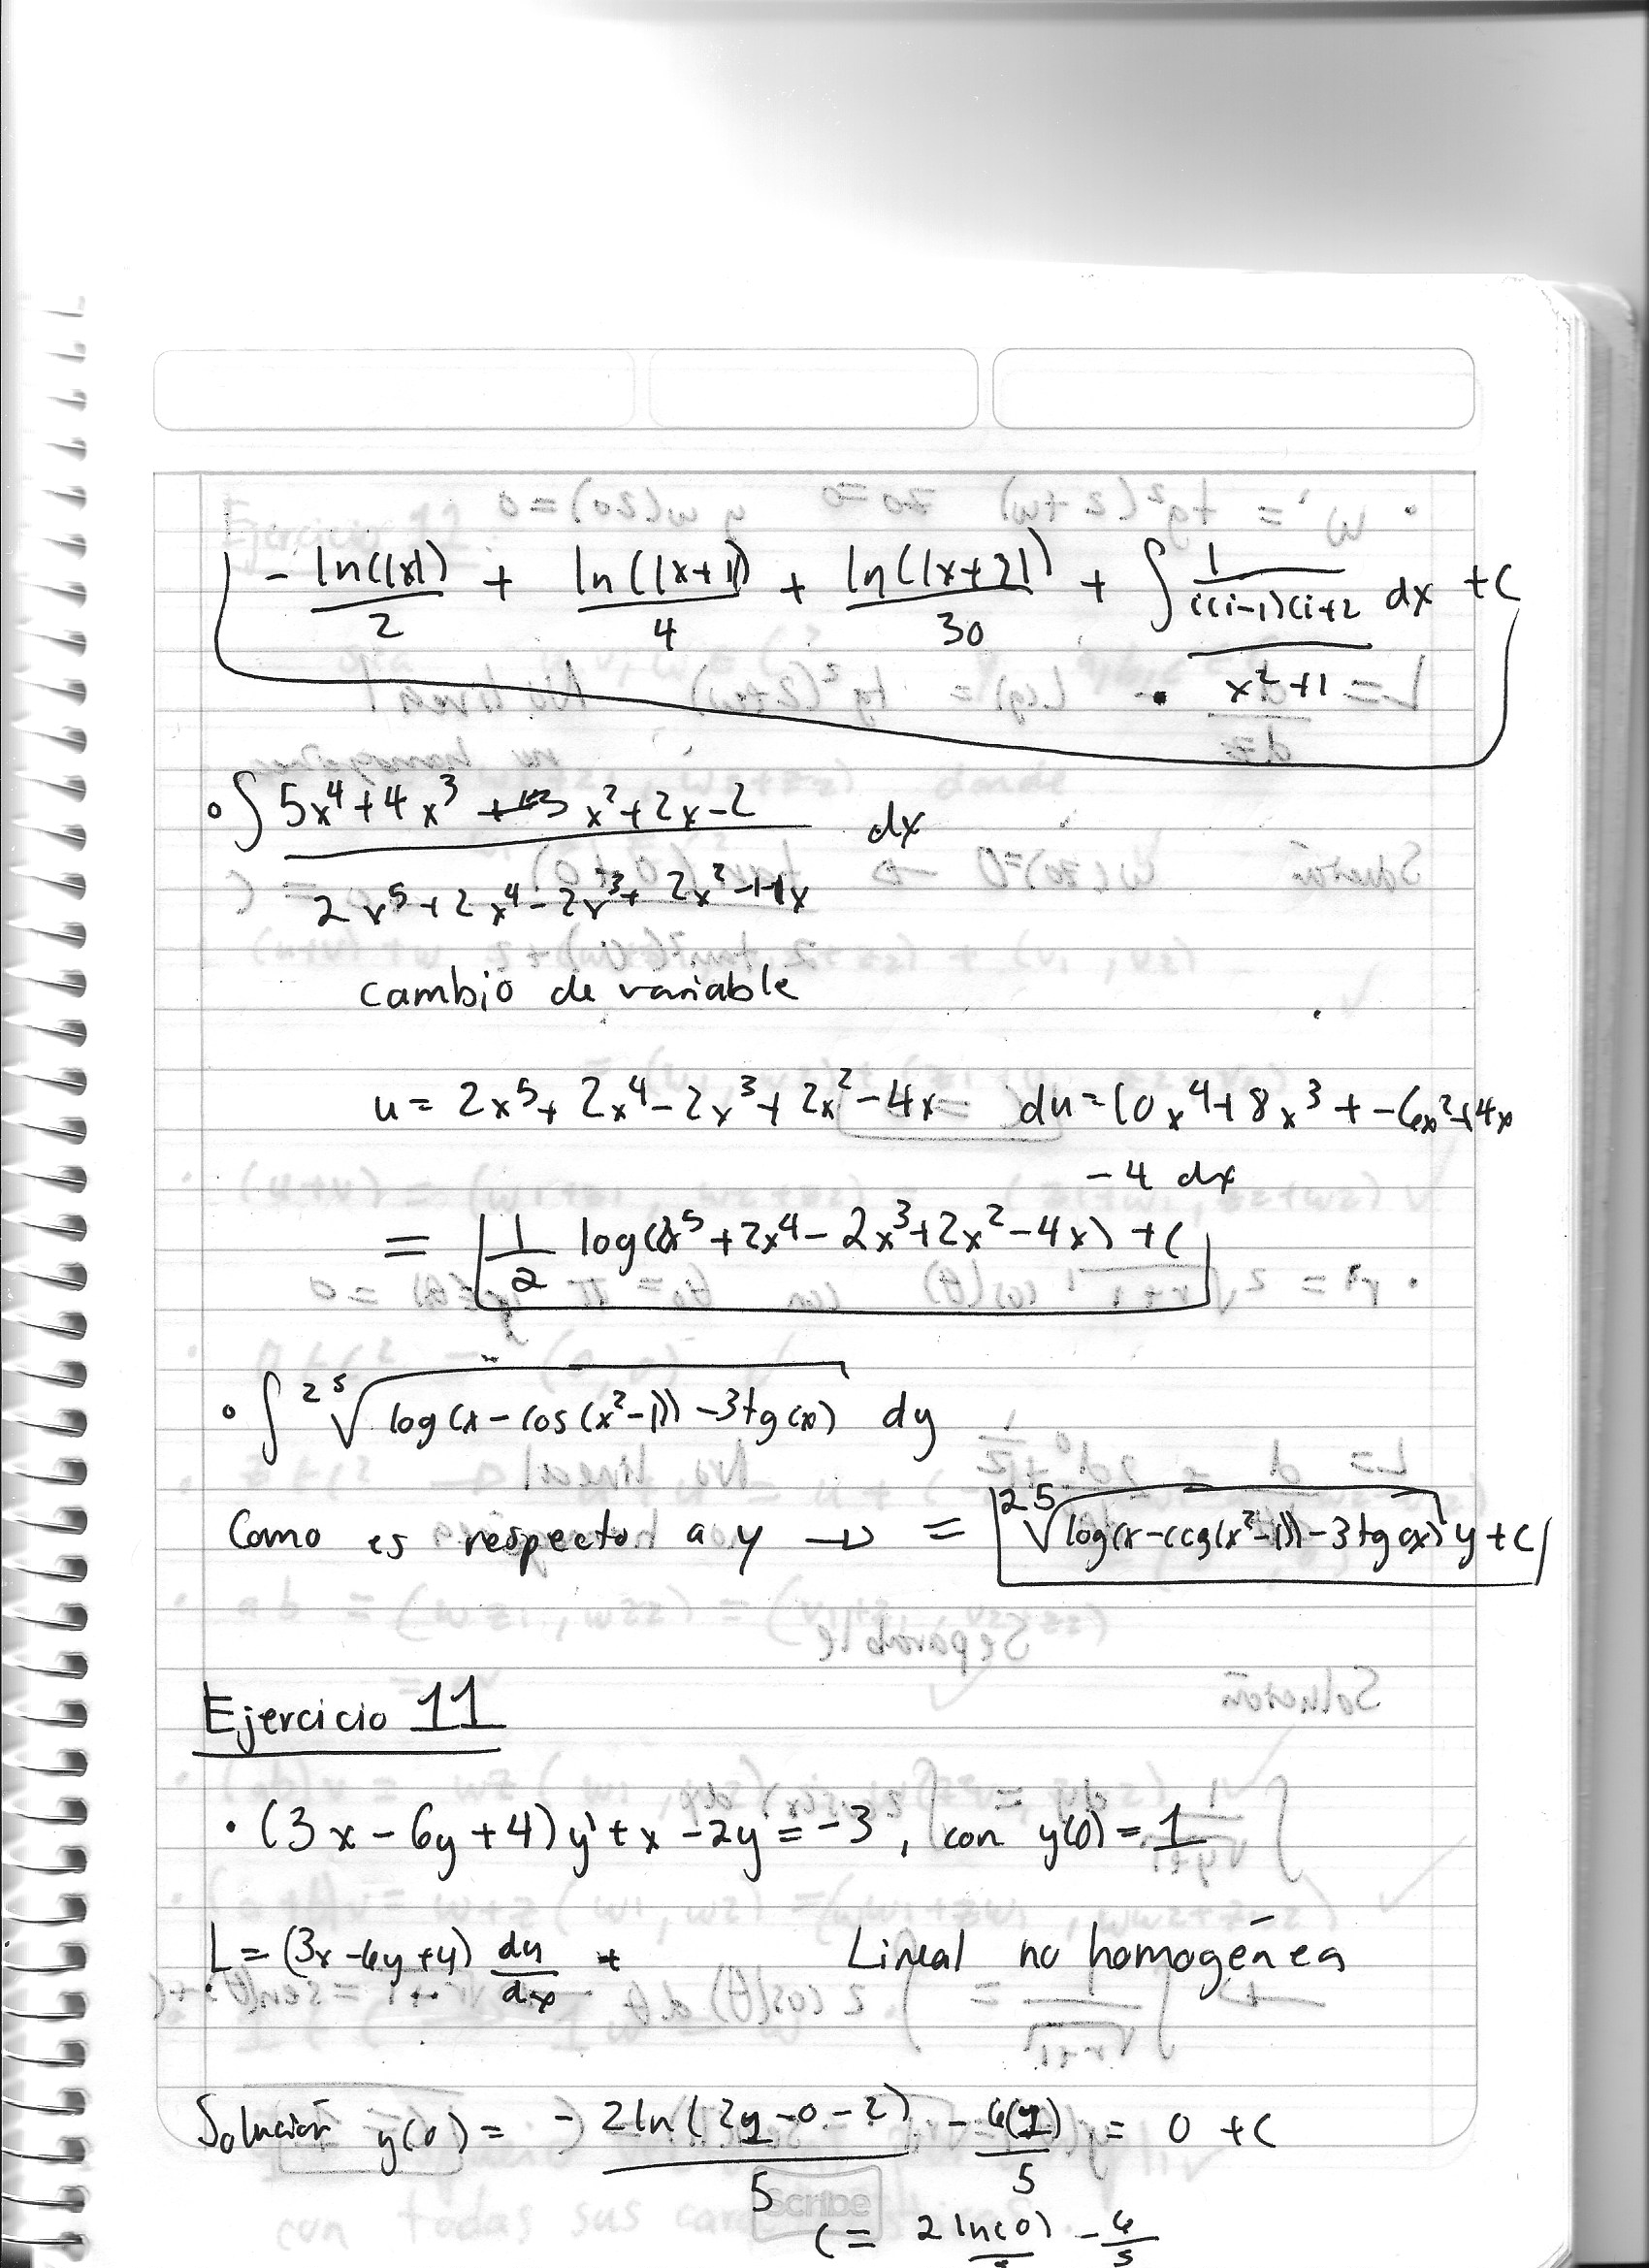 - ln(|x|)/2 + ln(|x+1|)/4 + ln(|x+2|)/30 + ∫ 1/(i(i-1)(i+2 / x²+1 dx + C
∘ ∫ 5x⁴+4x³ -3x²+2x-2 / 2x⁵+2x⁴-2x³+2x²-4x dx
cambio de variable
u = 2x⁵+2x⁴-2x³+2x²-4x du = 10x⁴+8x³+-6x²+4x
-4 dx
= 1/2 log(2x⁵+2x⁴-2x³+2x²-4x) + C
∘ ∫ ²⁵√(log(x-cos(x²-1))-3tg(x)) dy
Como es respecto a y → = ²⁵√(log(x-cos(x²-1))-3tg(x)) y + C
Ejercicio 11
• (3x-6y+4)y'+x-2y=-3, con y(0)=1
L=(3x-6y+4) dy/dx + Lineal no homogénea
Solución y(0)= - 2ln(2y-0-2)/5 - 6(y)/5 = 0 + C
C = 2ln(0)/5 - 6/5
Scribe